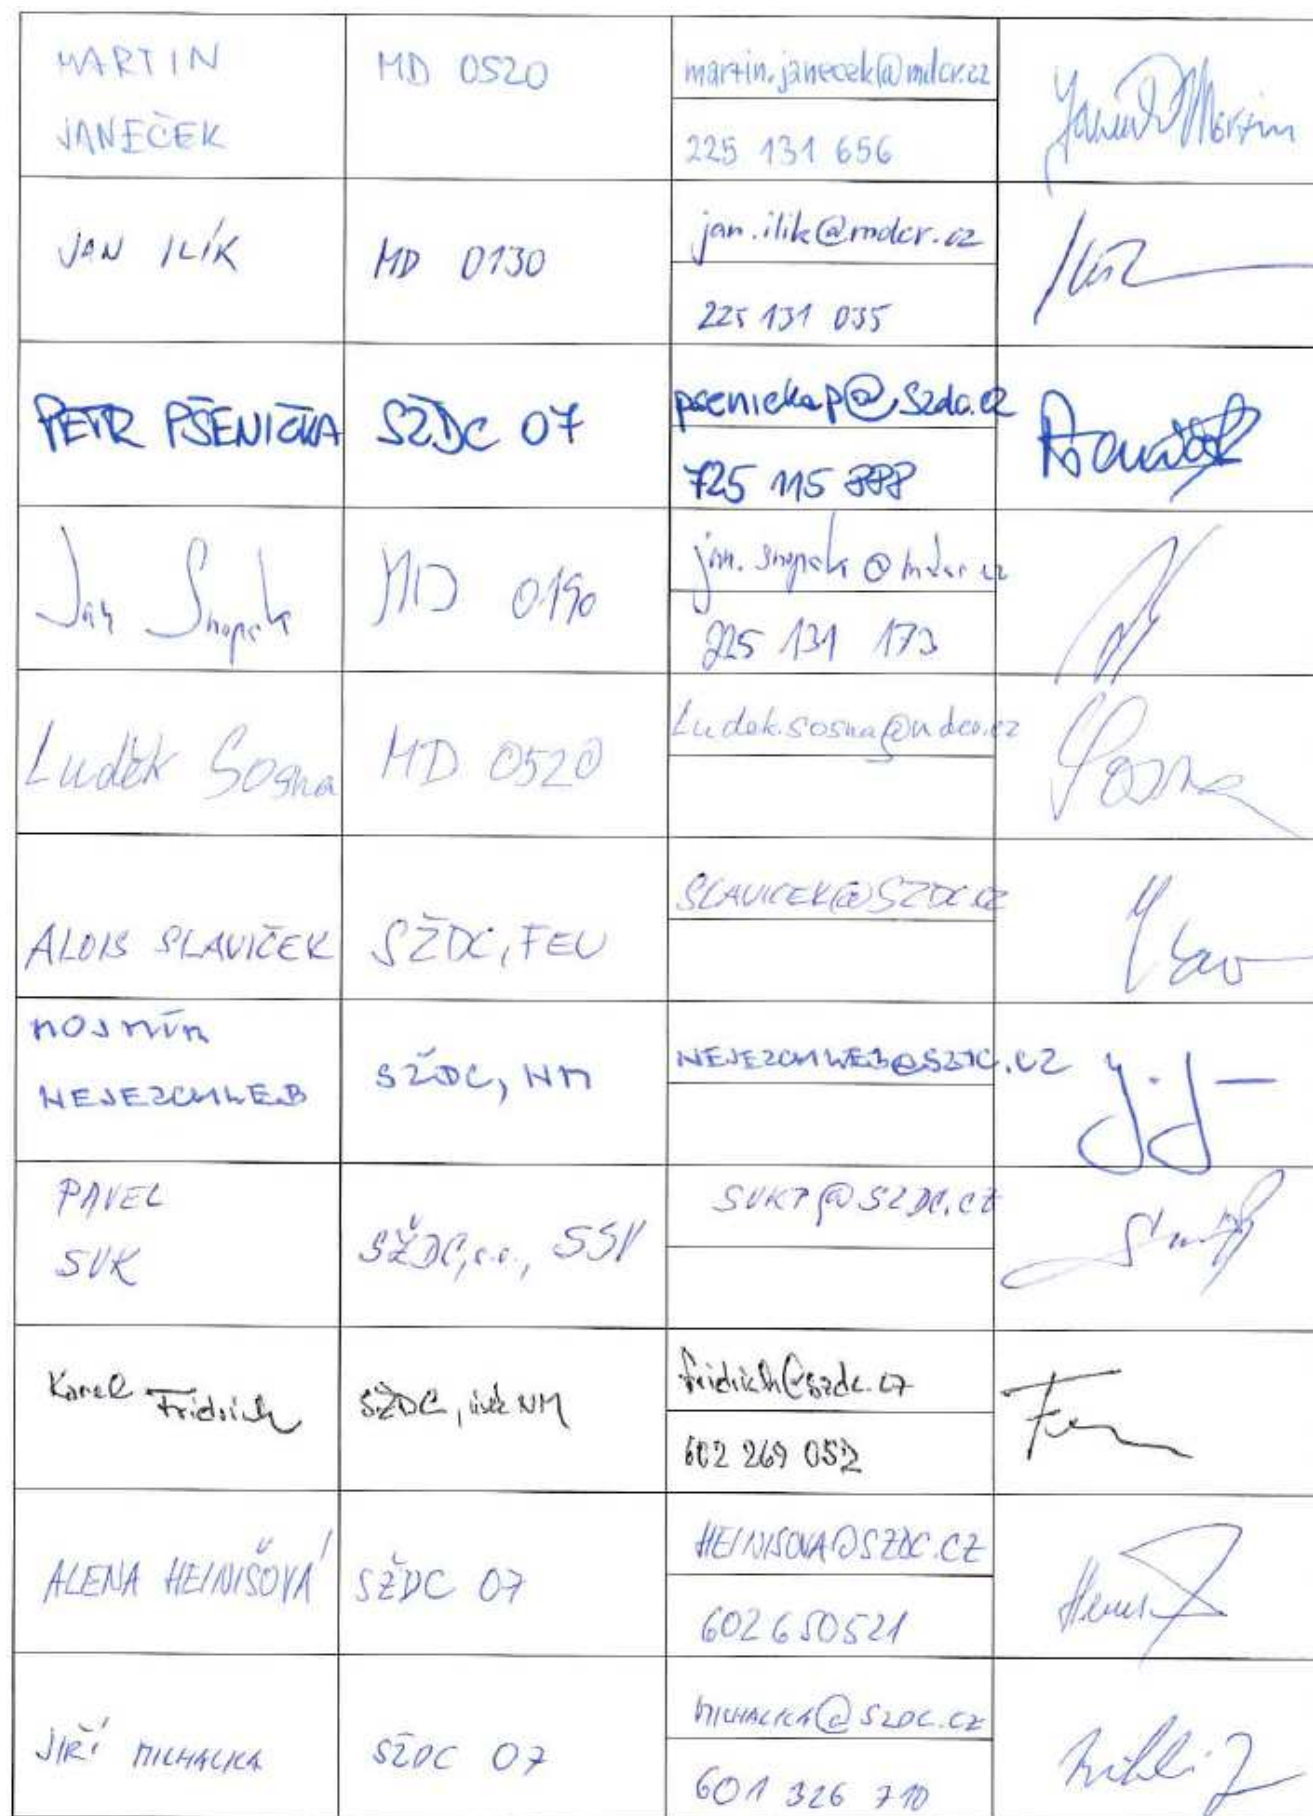 MARTIN
JANEČEK
MD 0520
martin.janecek@mdcr.cz
225 131 656
JAN ILÍK
MD 0130
jan.ilik@mdcr.cz
225 131 035
PETR PŠENIČKA
SŽDC 07
psenickap@szdc.cz
725 115 888
Jan Snopek
MD 0190
jan.snopek@mdcr.cz
225 131 173
Luděk Sosna
MD 0520
Ludek.sosna@mdcr.cz
Sosna
ALOIS SLAVÍČEK
SŽDC, FEU
SLAVICEK@SZDC.CZ
MOJMÍR
NEJEZCHLEB
SŽDC, NM
NEJEZCHLEB@SZDC.CZ
PAVEL
SUK
SŽDC, s.o., SSV
SUKP@SZDC.CZ
Karel Fridrich
SŽDC, úsek NM
fridrich@szdc.cz
602 269 052
ALENA HEINIŠOVÁ
SŽDC 07
HEINISOVA@SZDC.CZ
602650521
JIŘÍ MICHALICA
SŽDC 07
MICHALICA@SZDC.CZ
601 326 710